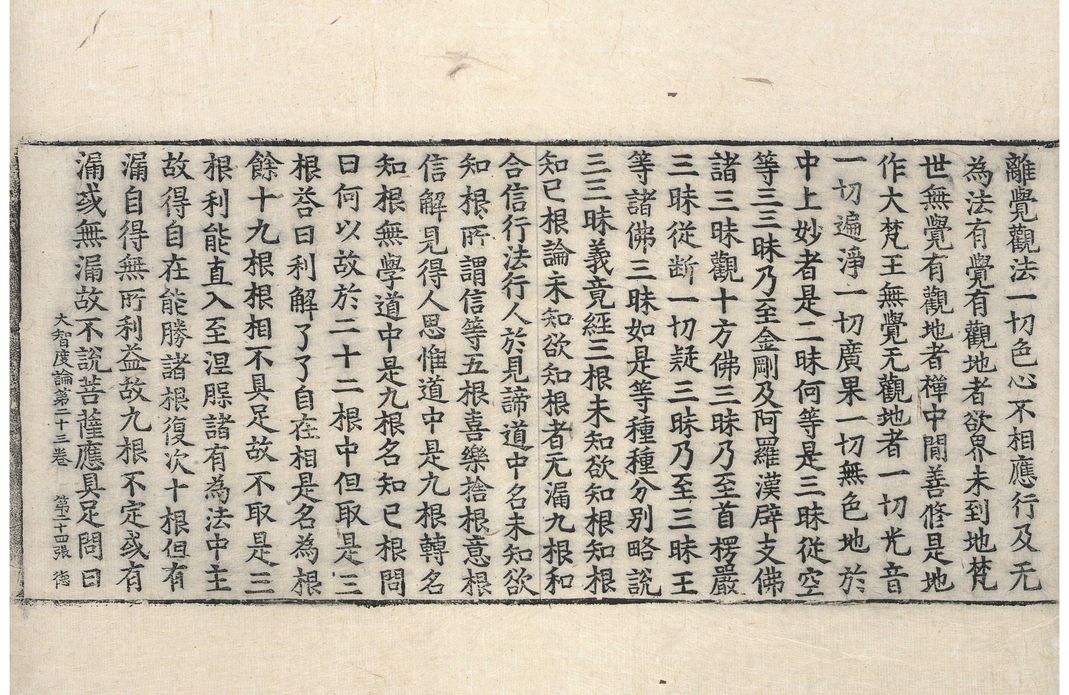 離覺觀法一切色心不相應行及无
為法有覺有觀地者欲界未到地梵
世無覺有觀地者禪中間善修是地
作大梵王無覺无觀地者一切光音
一切遍淨一切廣果一切無色地於
中上妙者是二昧何等是三昧從空
等三三昧乃至金剛及阿羅漢辟支佛
諸三昧觀十方佛三昧乃至首楞嚴
三昧從断一切疑三昧乃至三昧王
等諸佛三昧如是等種種分別略說
三三昧義竟經三根未知欲知根知根
知已根論未知欲知根者无漏九根和
合信行法行人於見諦道中名未知欲
知根所謂信等五根喜樂捨根意根
信解見得人思惟道中是九根轉名
知根無學道中是九根名知已根問
曰何以故於二十二根中但取是三
根荅曰利解了了自在相是名為根
餘十九根根相不具足故不取是三
根利能直入至涅槃諸有為法中主
故得自在能勝諸根復次十根但有
漏自得無所利益故九根不定或有
漏或無漏故不說菩薩應具足問曰
大智度論第二十三卷 第二十四張 德